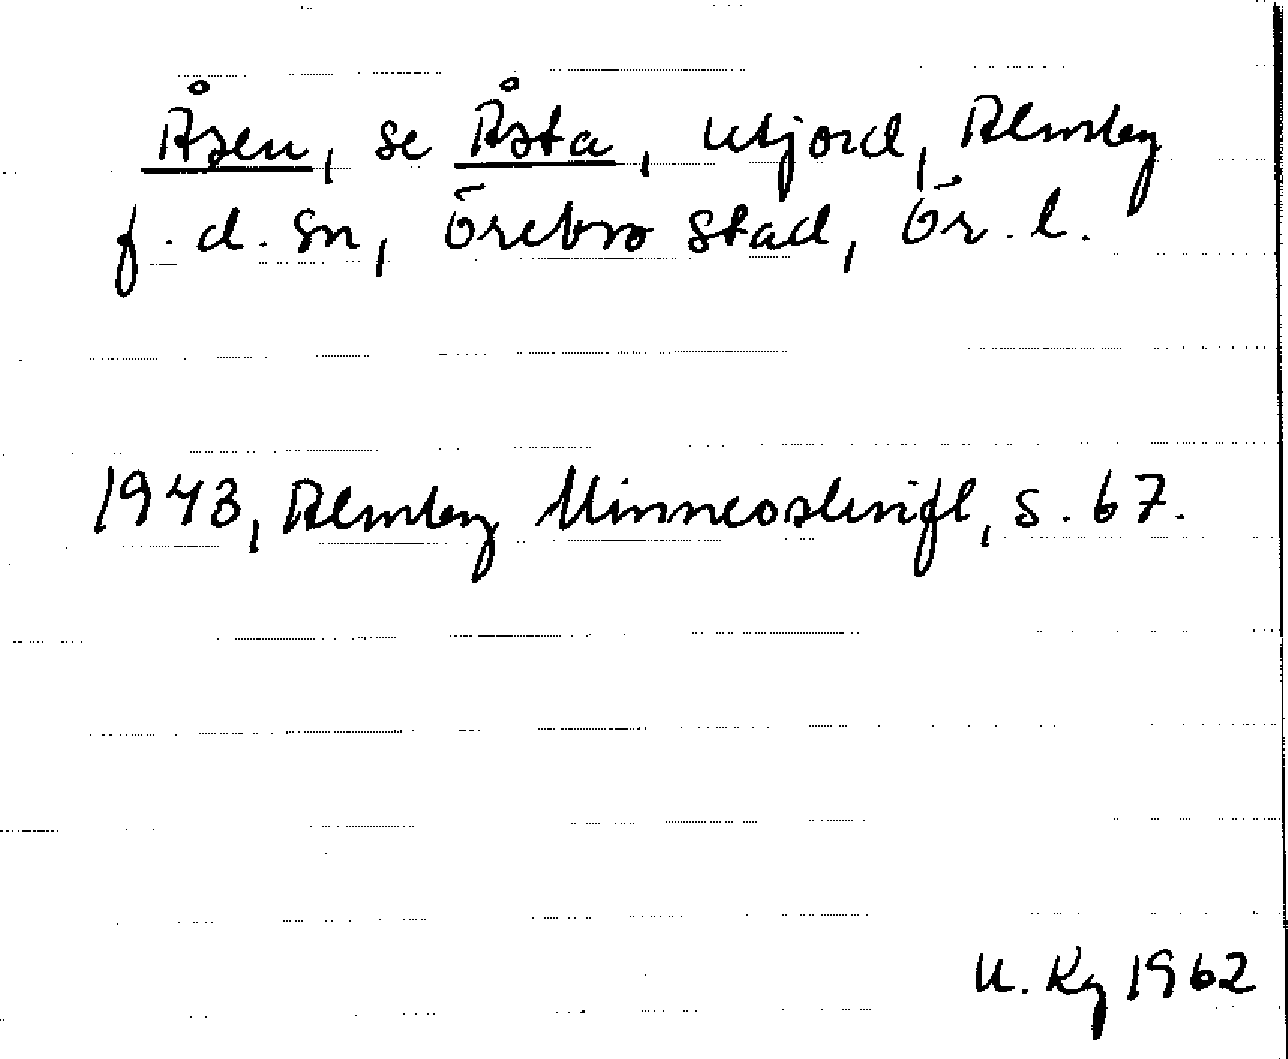 Åsen, se Åsta, utjord, Almby
f. d. sn, Örebro stad, Ör. l.
1943, Almby Minneskrift, s. 67.
U. Kg 1962